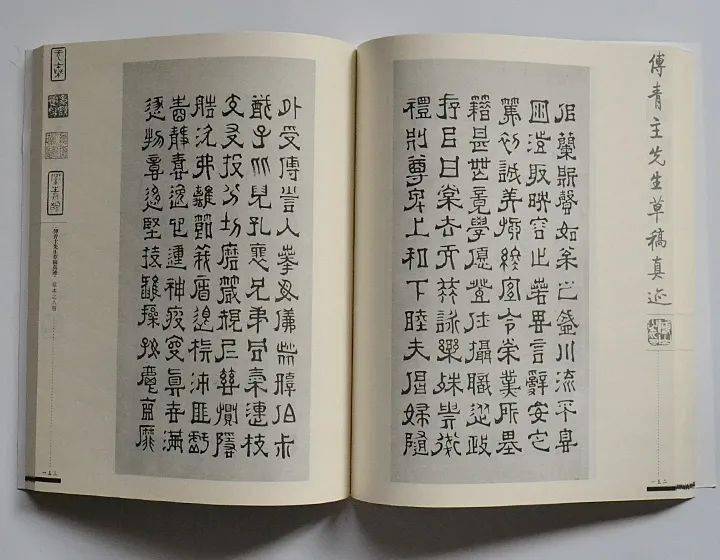 傅青主先生草稿真迹
佀蘭斯馨如松之盛川流不息
淵澄取映容止若思言辭安定
篤初誠美慎終宜令榮業所基
籍甚無竟學優登仕攝職從政
存以甘棠去而益詠樂殊貴賤
禮別尊卑上和下睦夫唱婦隨
一五二
外受傅訓入奉母儀諸姑伯叔
猶子比兒孔懷兄弟同氣連枝
交友投分切磨箴規仁慈隱惻
造次弗離節義廉退顛沛匪虧
性靜情逸心動神疲守真志滿
逐物意移堅持雅操好爵自縻
傅青主先生草稿真迹
一五三